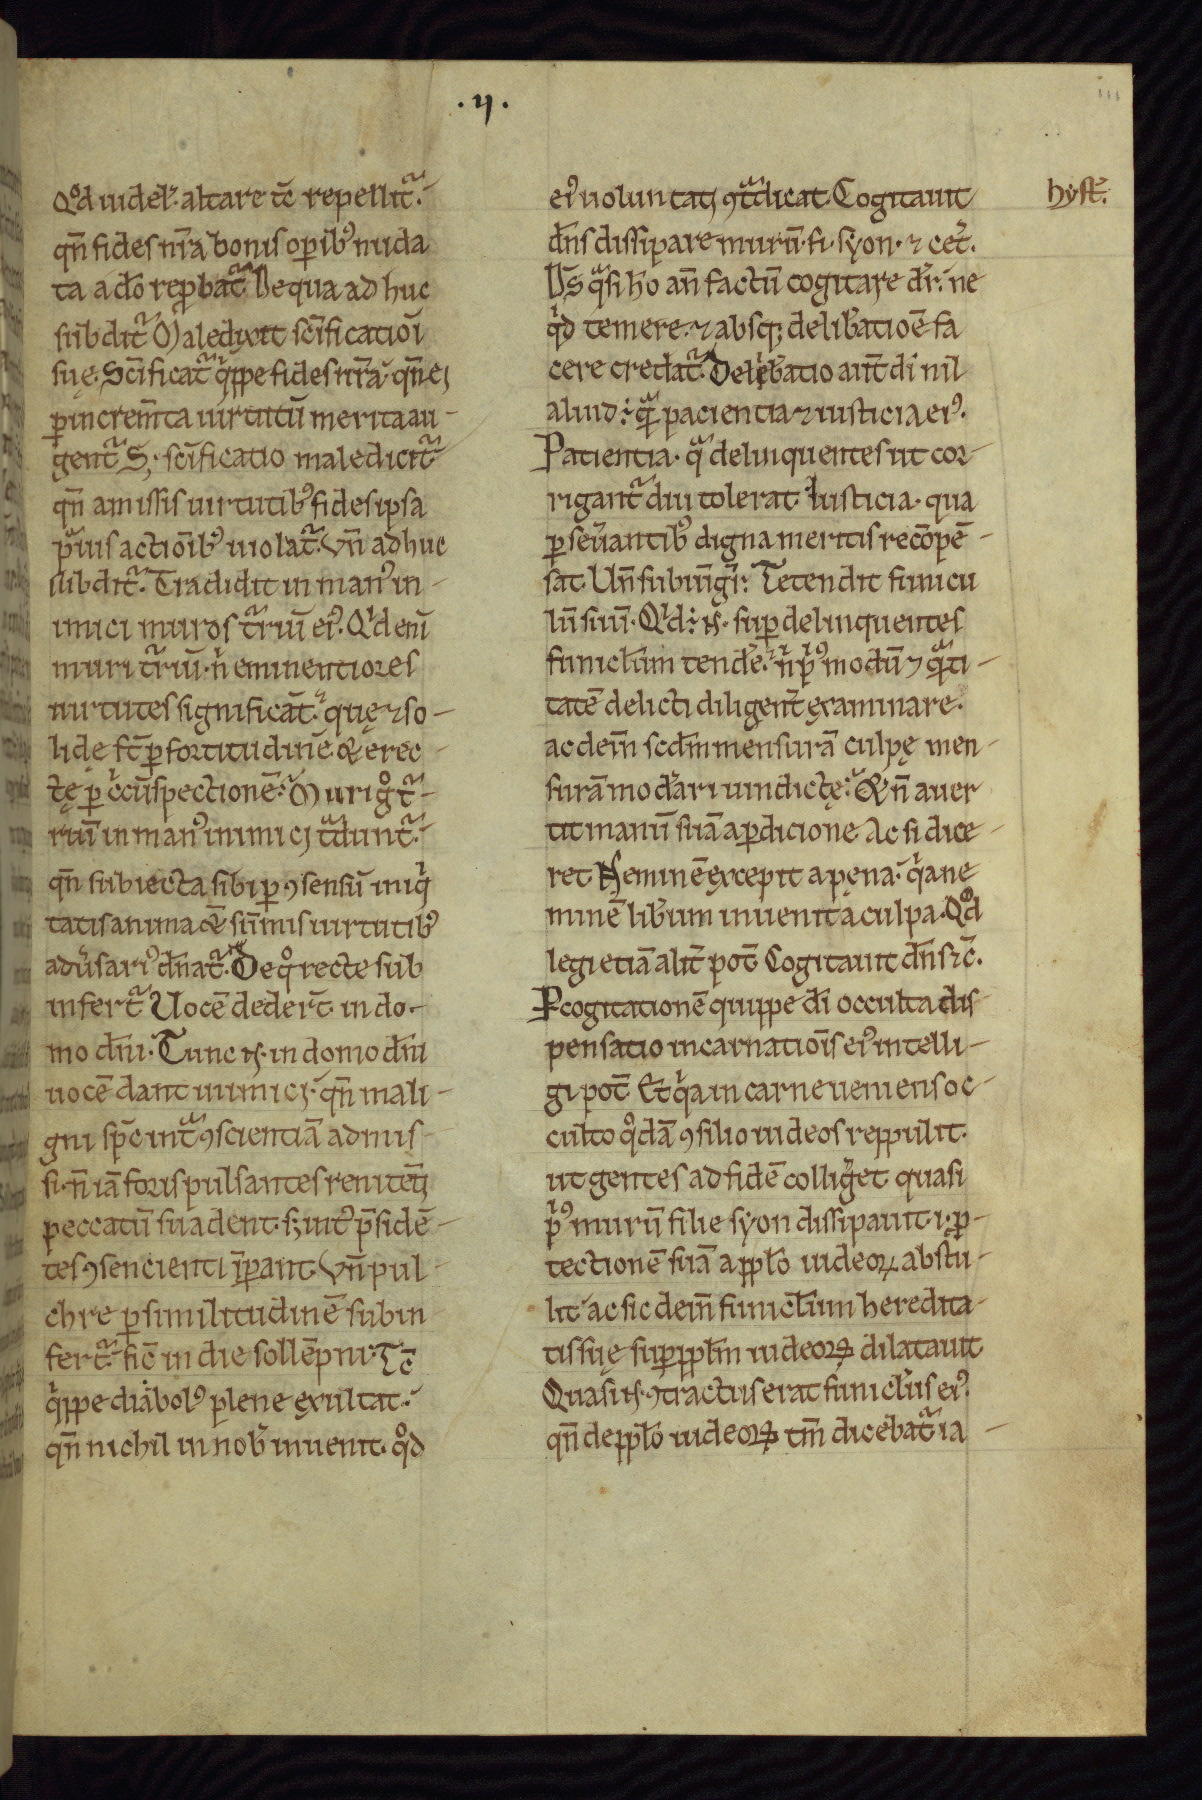 .ii.
iii
Qd̊ uidel̃. altare tc̃ repellit᷑.
qñ fides nr̃a bonis op̲ib᷒ nuda
ta a dõ rep̲bat᷑. De qua ad huc
subdit᷑. Maledixit sc̃ificatiõi
suę. Sc̃ificat᷑ q̇ppe fides nr̃a. qñ ei
p̲ increm̃ta uirtutũ merita au-
gent᷑. S; sc̃ificatio maledicit᷑
qñ amissis uirtutib᷒ fides ipsa
p̃uis actiõib᷒ uiolat᷑. Vñ ad huc
subdit᷑. Tradidit in man᷒ in-
imici muros t᷑riũ ei᷒. Qͥd eni̅
muri t᷑riũ. ñ eminentiores
uirtutes significãt. quę ⁊ so-
lidę st̃ p̲ fortitudinẽ. & erec-
tę p̲ c̊cũspectionẽ. Muri g̊ t᷑-
riũ in man᷒ inimici t᷑dunt᷑.
qñ subiecta sibi p̲ ꝯsensũ iniqͥ
tatis anima & sũmis uirtutib᷒
adũsari᷒ dñat᷑. De qͦ recte sub
infert᷑. Uocẽ dedert̃ in do-
mo dñi. Tunc .n. in domo dñi
uocẽ dant inimici. qñ mali-
gni sp̃c int᷑ ꝯscientiã admis-
si. ñ iã foris pulsantes reniteñti
peccatũ suadent. s; int᷒ p̃sidẽ-
tes ꝯsencienti ip̲ant. Vñ pul-
chre p̲ similitudinẽ subin
fert᷑. sic̃ in die sollẽpni. Tc̃
q̇ppe diabol᷒ plene exultat.
qñ nichil in nob̃ inuenit. qͦd
ei᷒ uoluntati ꝯt᷑dicat. Cogitauit
dñs dissipare murũ. fi. syon. ⁊ cet̃.
Ds̃ qͣsi hõ añ factũ cogitare dr̃. ne
qͥd temere. ⁊ absq; delib̃atiõe fa
cere credat᷑. Delib̃atio aut̃ di̅ nil
aliud .÷. qͣm pacientia ⁊ iusticia ei᷒.
Patientia. qͣ delinquentes ut cor-
rigant᷑ diu tolerat. Iusticia. qua
p̲seũantib᷒ digna meritis recõpẽ-
sat. Uñ subiũgr̃. Tetendit funicu
lũ suũ. Qͥd .÷. .n. sup̲ delinquentes
funiclũm tendẽ. ñ p᷒ modũ ⁊ qͣnti-
tatẽ delicti diligent̃ examinare.
ac deiñ scdm̃ mensurã culpę men-
surã mod̃ari uindictę. & ñ auer
tit manũ suã a p̲dicione. Ac si dice-
ret. Neminẽ excepit a pęna. qͥa ne
minẽ lib̃um inuenit a culpa. Qͦd
legi etiã alit̃ pot̃. Cogitauit dñs ⁊c̃.
P̲ cogitationẽ quippe di̅ occulta dis
pensatio incarnatiõis ei᷒ intelli-
gi pot̃. Et qͥa in carne ueniens oc-
culto qͦdã ꝯsilio iudeos reppulit.
ut gentes ad fidẽ collig̃et. quasi
p᷒ murũ filie syon dissipauit .i. p̲-
tectionẽ suã a pplõ iudeoꝝ abstu-
lit. ac sic deiñ funiclũm heredita-
tis suę sup̲ pplm̃ iudeoꝝ dilatauit
Quasi .n. ꝯtractus erat funiclũs ei᷒.
qñ de pplõ iudeoꝝ tm̃ dicebat᷑ ia-
hyst̃.